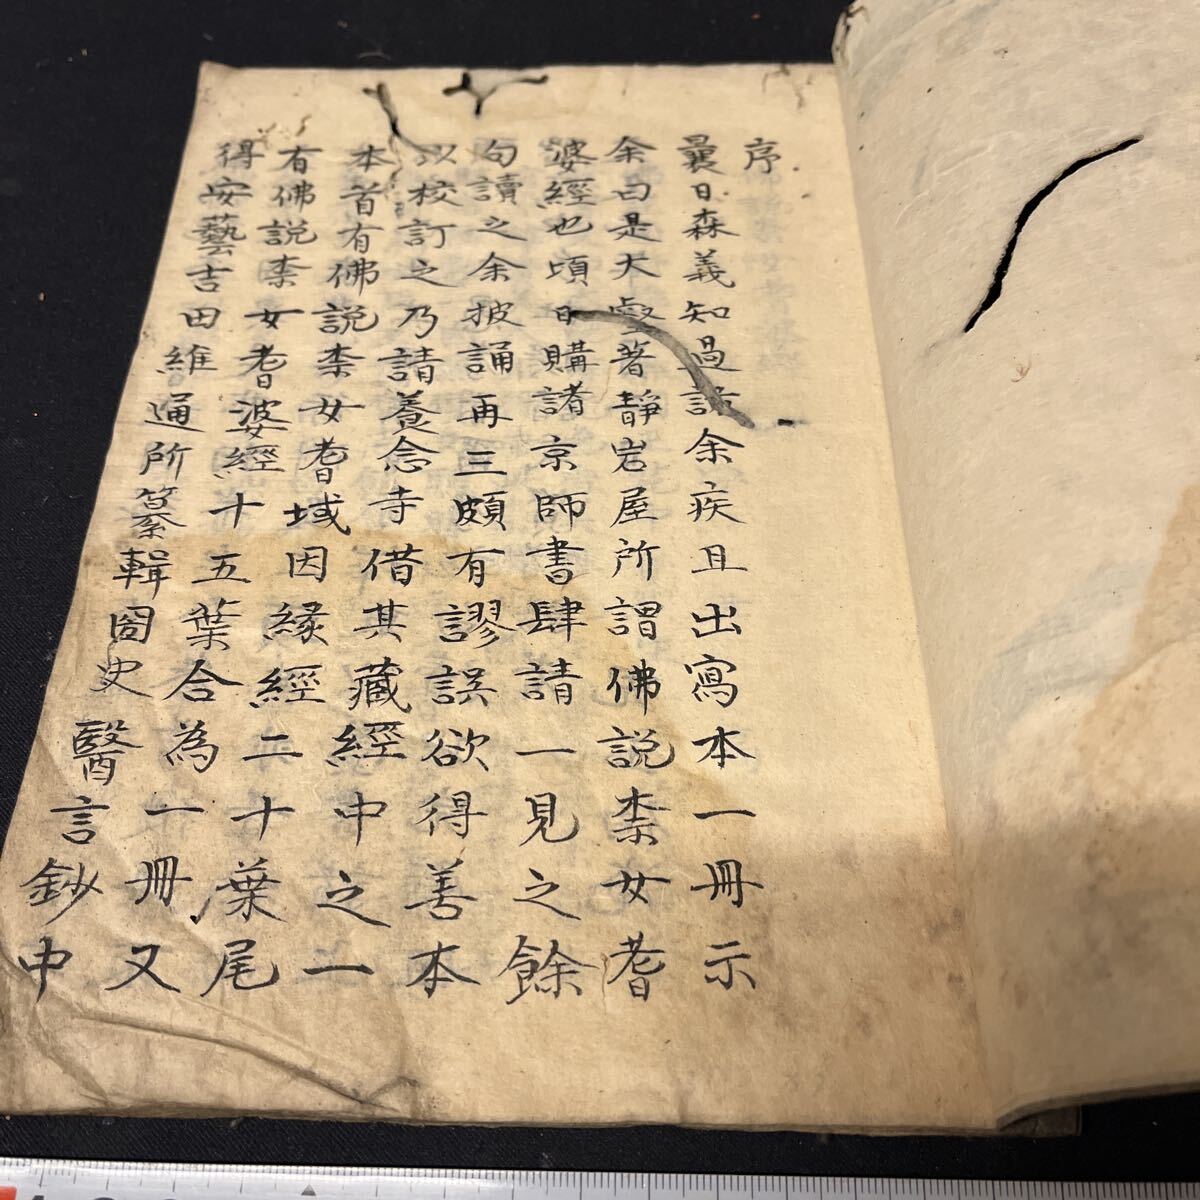 序
曩日森義知過訪余疾且出寫本一冊示
余曰是大壑著靜岩屋所謂佛説柰女耆
婆經也頃日購諸京師書肆請一見之餘
句讀之余披誦再三頗有謬誤欲得善本
以校訂之乃請養念寺借其藏經中之一
本首有佛説柰女耆域因緣經二十葉尾
有佛説柰女耆婆經十五葉合為一冊又
得安藝吉田維通所纂輯圀史醫言鈔中